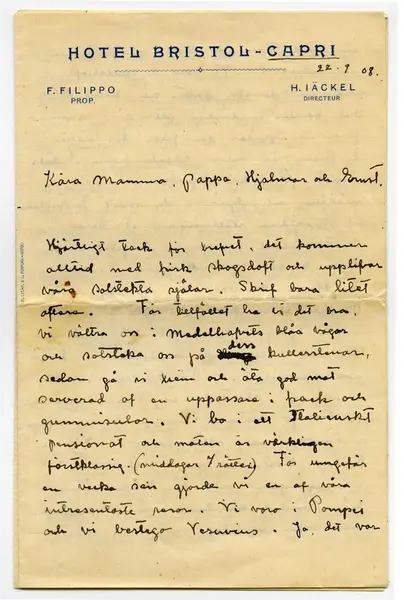 HOTEL BRISTOL-CAPRI
22. 9 08.
F. FILIPPO
PROP.
H. IÄCKEL
DIRECTEUR
Kära Mamma, Pappa, Hjalmar och Ernst.
Hjärtligt tack för brefvet, det kommer
alltid med frisk skogsdoft och upplifvar
våra solstekta själar. Skrif bara litet
oftare. För tillfället ha vi det bra,
vi vältra oss i Medelhafvets blåa vågor
och solsteka oss på dess kullerstenar,
sedan gå vi hem och äta god mat
serverad af en uppassare i frack och
gummisulor. Vi bo i ett Italienskt
pensionat och maten är värkligen
förstklassig. (middagar 7 rätter) För ungefär
en vecka sen gjorde vi en af våra
intressantaste resor. Vi voro i Pompei
och vi bestego Vesuvius. Ja, det var